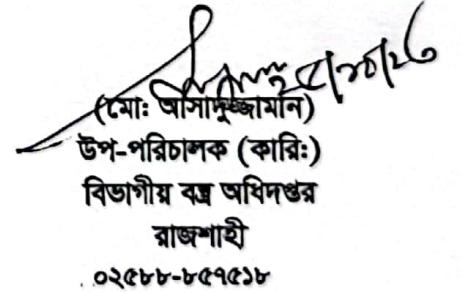 (মো: আসাদুজ্জামান)
উপ-পরিচালক (কারি:)
বিভাগীয় বস্ত্র অধিদপ্তর
রাজশাহী
০২৫৮৮-৮৫৭৫১৮